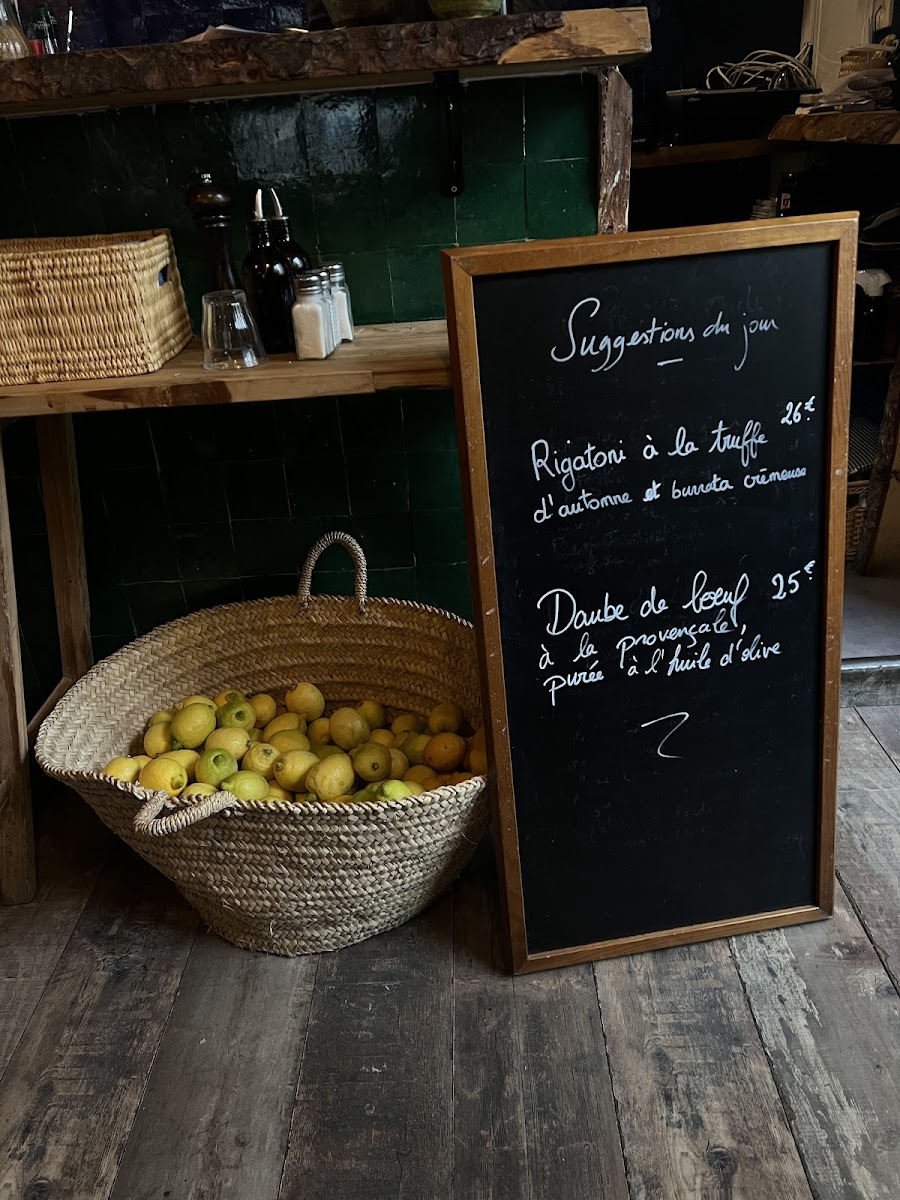 Suggestions du jour
Rigatoni à la truffe 26€
d'automne et burrata crémeuse
Daube de bœuf 25€
à la provençale,
purée à l'huile d'olive